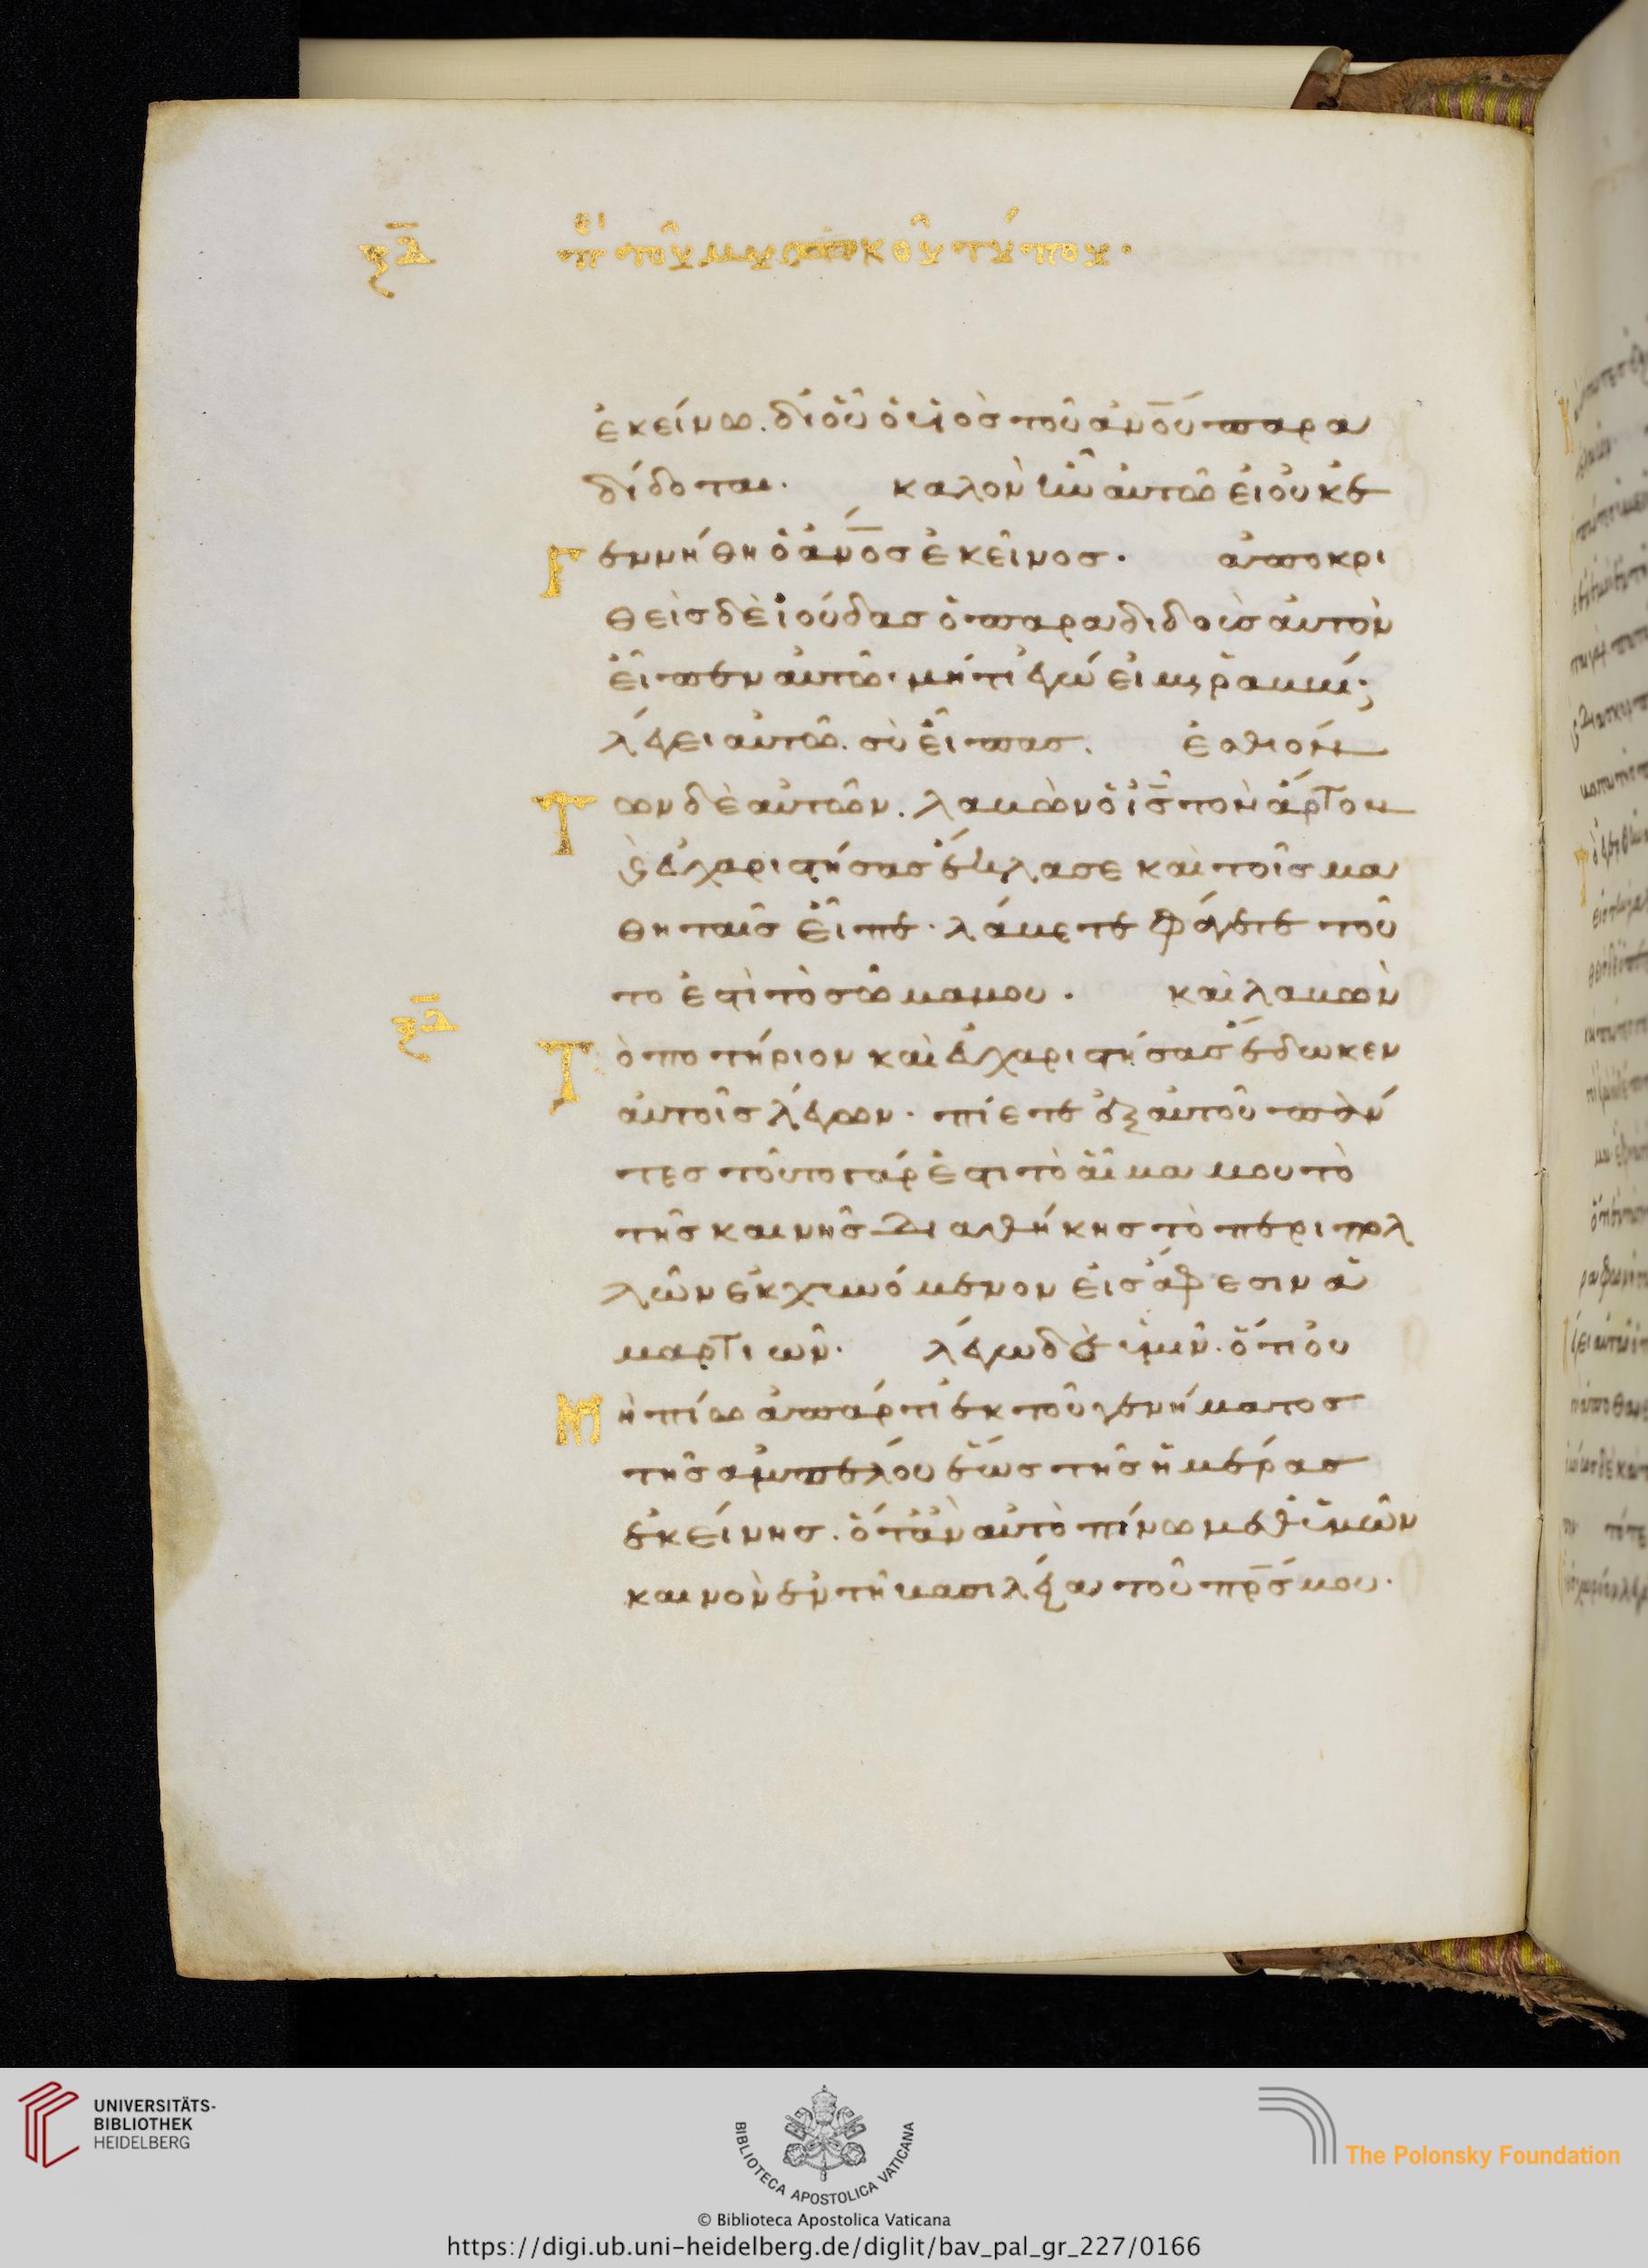 ξδ πε τοῦ μυστικοῦ τύπου.
ἐκείνω. δι οὗ ὁ υἱὸσ τοῦ ἀνου παρα
δίδοται. καλὸν ἦν αὐτῶ εἰ οὐκ ἐ
γεννήθη ὁ ἀνοσ ἐκεῖνοσ. ἀποκρι
θεὶσ δὲ ἰούδασ ὁ παραδιδοὺσ αὐτὸν
εἶπεν αὐτῶ. μήτι ἐγώ εἰμι ῥαββί;
λέγει αὐτῶ. σὺ εἶπασ. ἐσθιόν
Των δὲ αὐτῶν. λαβὼν ὁ ισ τὸν ἄρτον
ϗ εὐχαριστήσασ ἔκλασε καὶ τοῖσ μα
θηταῖσ εἶπε. λάβετε φάγετε τοῦ
το ἐστὶ τὸ σῶμα μου. καὶ λαβὼν
ξδ
Τὸ ποτήριον καὶ εὐχαριστήσασ ἔδωκεν
αὐτοῖσ λέγων. πίετε ἐξ αὐτοῦ πάν
τεσ τοῦτο γάρ ἐστι τὸ αἷμα μου τὸ
τῆσ καινῆσ διαθήκησ τὸ περι πολ
λῶν ἐκχυνόμενον εἰσ ἄφεσιν ἁ
μαρτιῶν. λέγω δὲ ὑμῖν. ὅτι οὐ
Μὴ πίω ἀπάρτι ἐκ τοῦ γενήματοσ
τῆσ ἀμπέλου ἕωσ τῆσ ἡμέρασ
ἐκείνησ. ὅταν αὐτὸ πίνω μεθ ὑμῶν
καινὸν ἐν τῆ βασιλεία τοῦ πρσ μου.
UNIVERSITÄTS-
BIBLIOTHEK
HEIDELBERG
BIBLIOTECA APOSTOLICA VATICANA
The Polonsky Foundation
© Biblioteca Apostolica Vaticana
https://digi.ub.uni-heidelberg.de/diglit/bav_pal_gr_227/0166